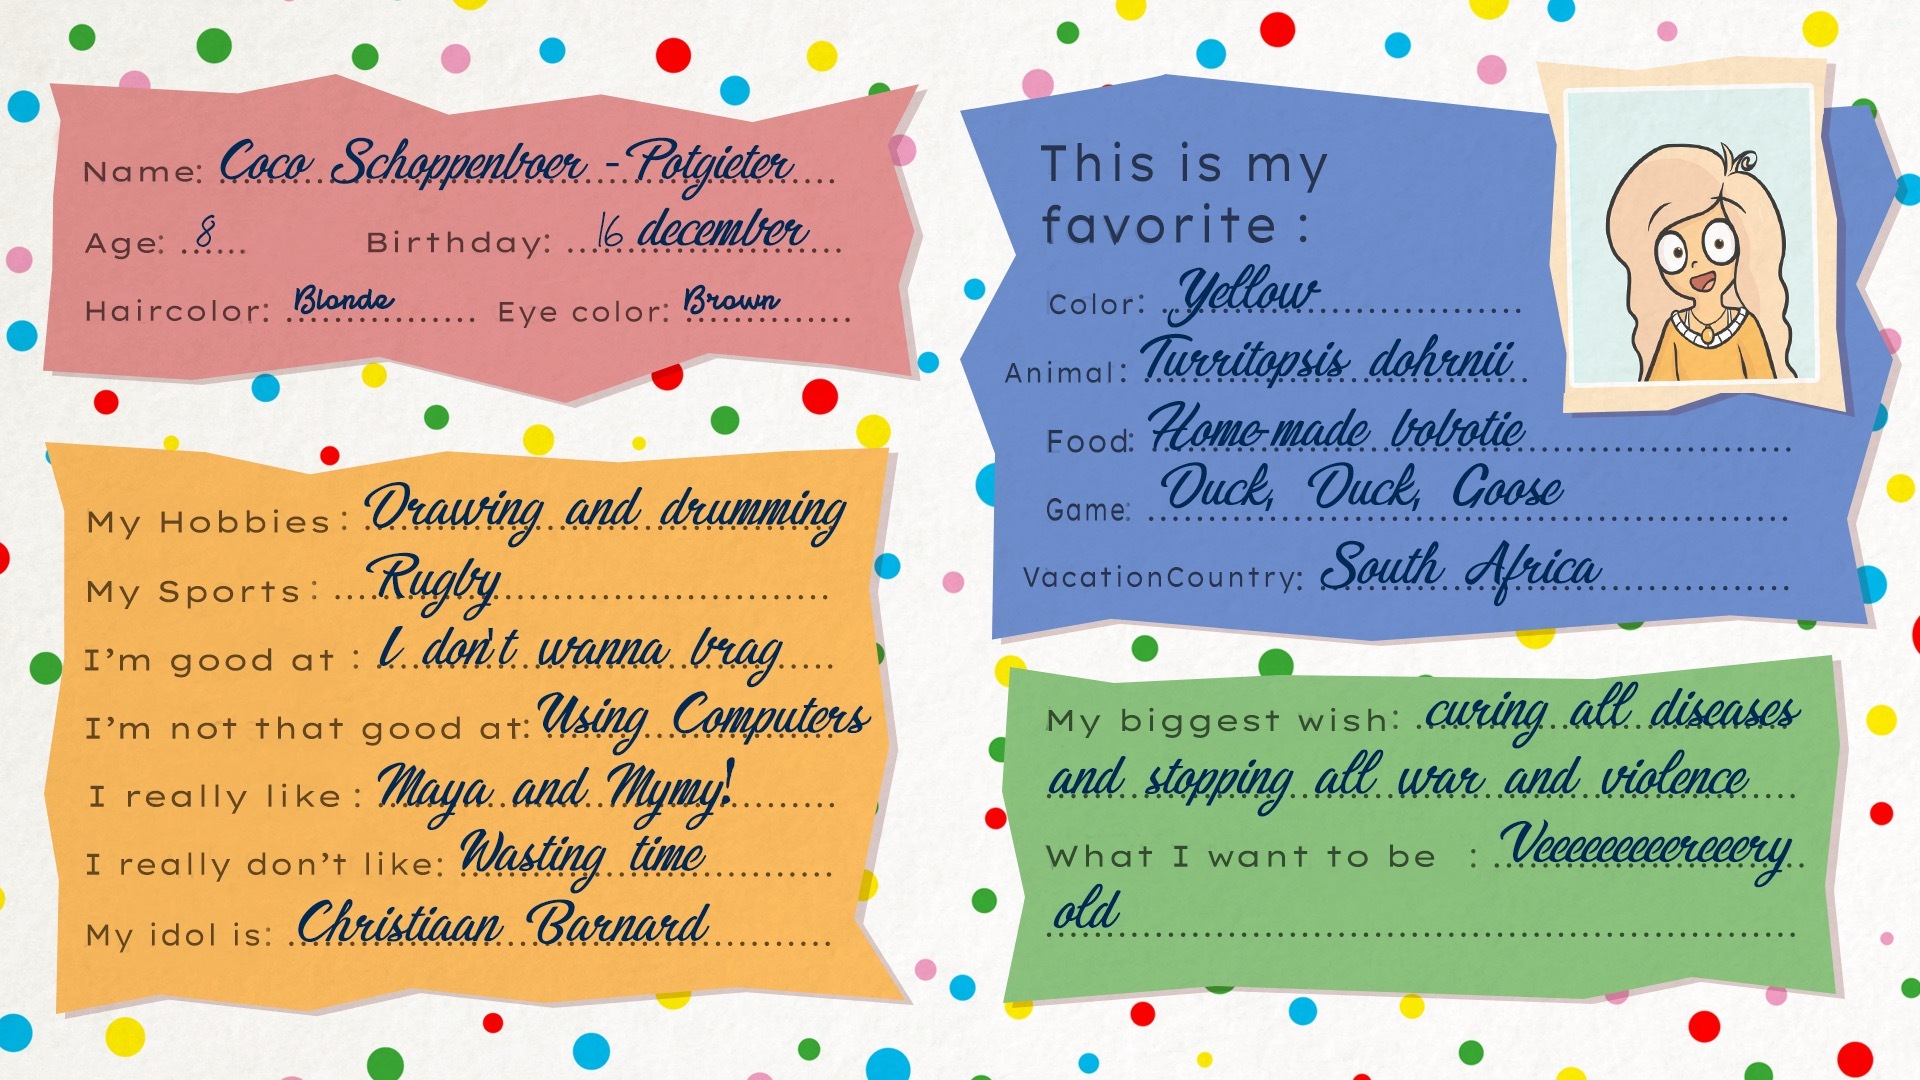 Name: Coco Schoppenboer - Potgieter
Age: 8 Birthday: 16 december
Haircolor: Blonde Eye color: Brown
My Hobbies: Drawing and drumming
My Sports: Rugby
I'm good at: I don't wanna brag
I'm not that good at: Using Computers
I really like: Maya and Mymy!
I really don't like: Wasting time
My idol is: Christiaan Barnard
This is my
favorite:
Color: Yellow
Animal: Turritopsis dohrnii
Food: Home-made bobotie
Game: Duck, Duck, Goose
VacationCountry: South Africa
My biggest wish: curing all diseases
and stopping all war and violence
What I want to be : Veeeeeeeeereeery
old